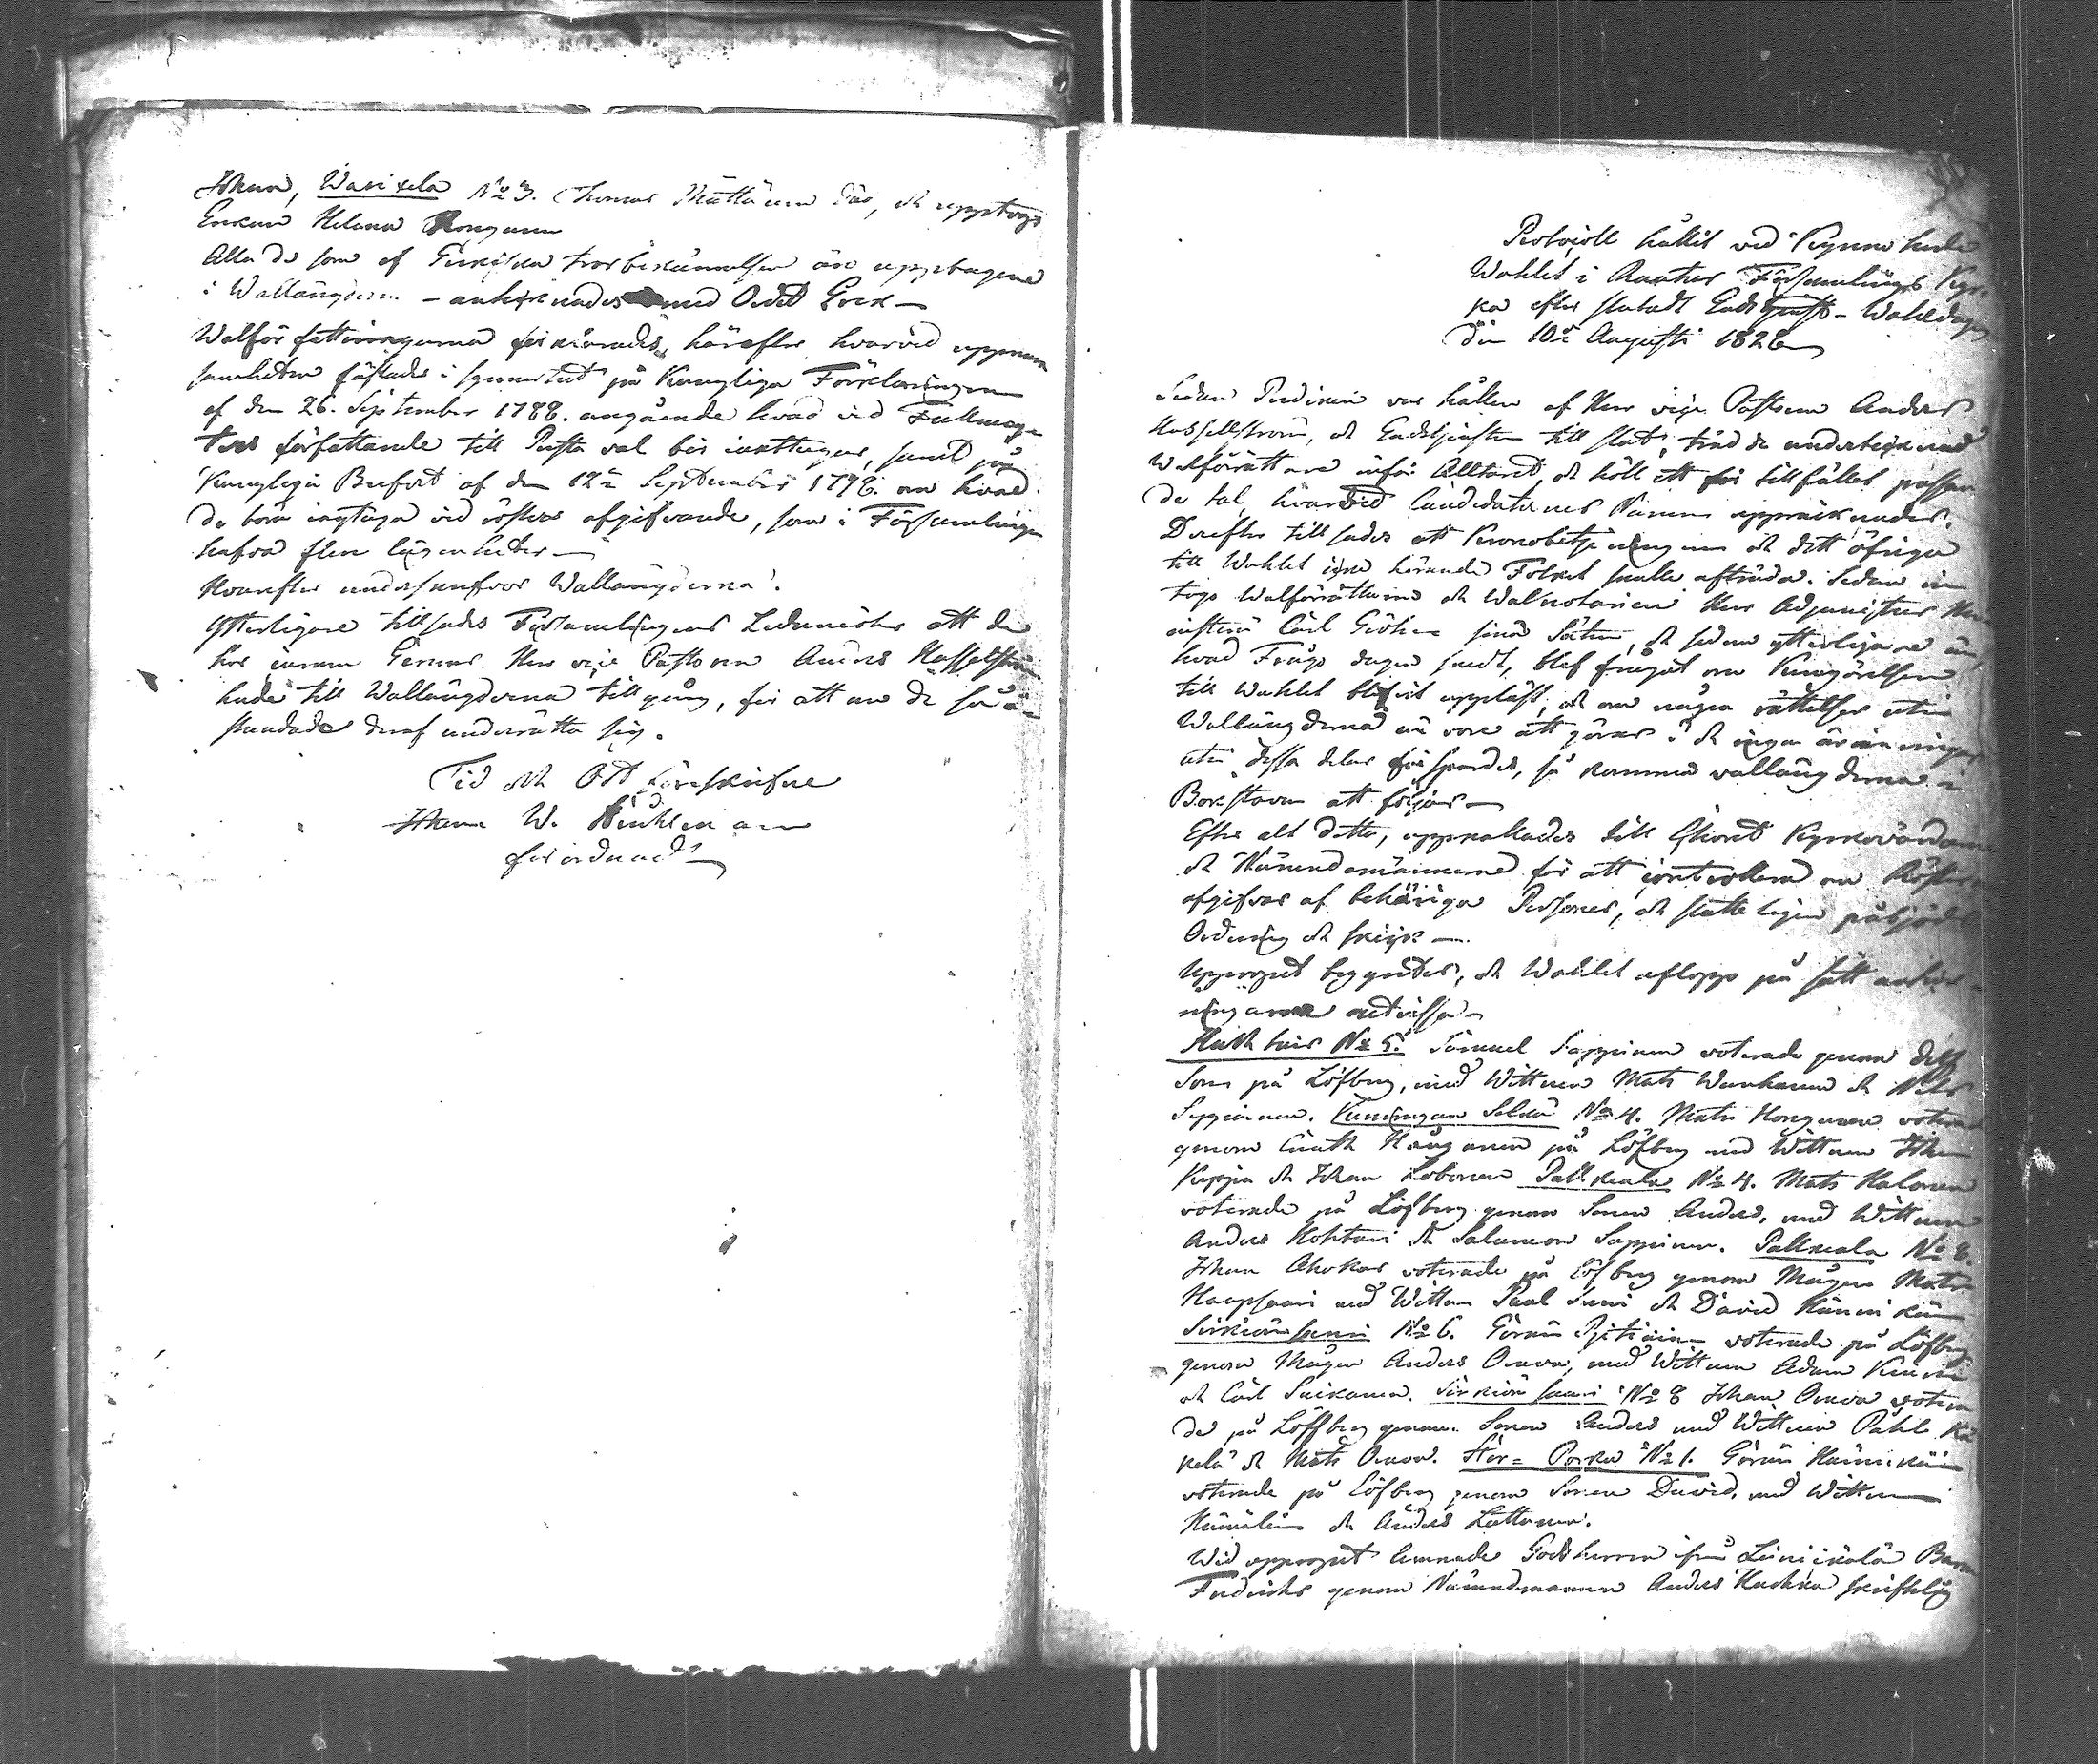 Johan, Wasikela No 3. Thomas Mättäinen dör, och upptogs
Enkan Helena Kongunen
Alla de som af Grekiska trosbekännelsen äro upptagene
i Wallängderne - anteknades med Ordet Grek -
Walförfattningarna förklarades härefter hvarvid uppmärk
samheten fästades i synnerhet på Kongliga Förklaringen
af den 26. September 1788. angående hvad vid Fullmag
ters författande till Prestaval bör iakttagas, samt på
Kongliga Brefvet af den 12te September 1798. om hvad
de böra iagttaga vid rösters afgifvande, som i Församlingen
hafva flere lägenheter -
Hvarefter underskrefvos Wallängderna.
Ytterligare tillsades Församlingens Ledamöter att de
hos Herr vice Pastoren Anders Hasselström
hade till Wallängderna tillgång, för att om de så å-
stundade deraf underrätta sig.
Tid och Ort föreskrifne
Johan W.
förordnad
Protocoll hållit vid Kyrkoherde
Wahlet i Rautus Församlings Kyr-
ka efter slutadt Gudstjenst - Wahldagen
den 10de Augusti 1828
Sedan Predikan var hållen af Herr vice Pastoren Anders
Hasselström, och Gudstjensten till slut, trädde undertecknad
Walförrättare inför Alltaret, och höll ett för tillfället passan
de tal, hvarvid Candidaternes Namn uppräknades.
Derefter tillsades att Kronobetjeningen och det öfriga
till Wahlet icke hörande Folket skulle afträda. Sedan in
togo Walförrättaren och Walnotarien Herr Adjuncten
Carl Gröhn sina Säten, och sedan ytterligare än
hvad Frågo dagen skedt, blef frågat om Kungörelsen
till Wahlet blifvit uppläst, och om några rättelser uti
Wallängderna än vore att göras? och inga anmärkningar
uti dessa delar förspordes, så kommo wallängderna i
Bokstafven att följas -
Efter allt detta, uppkallades till Choret Kyrkovärdarne
och Nämndemännerne för att controllera om Röster
afgifvas af behöriga Personer, och slutteligen påbjöds
Ordning och skick -
Uppropet begyntes, och Wahlet aflopp på sätt anteck-
ningarne utvissa -
No 5. Samuel Seppinen voterade genom dess
Son på Löfberg, med Wittnen Mats Wanhanen och Nils
Seppinen. Kuningan Selkä No 4. Mats Hongunen voterade
genom på Löfberg med Wittnen Johan
Keppi och Johan Lobonen Palkeala No 4. Mats Halonen
voterade på Löfberg genom Sonen Anders, med Wittnen
Anders Kohtari och Salomon Seppinen. Palkeala No 8.
Johan Ahokas voterade på Löfberg genom Mågen Mats
Haapsaari med Wittnen Paul Suni och David Hännikäin
Sirkiänsaari No 6. Göran voterade på Löfberg
genom Mågen Anders Orava, med Wittnen Adam
och Carl Suikanen. Sirkiän saari No 8 Johan Orava votera
de på Löffberg genom Sonen Anders med Wittnen Pahl
och Mats Orava. Stor = Porkka No 1. Göran Hännikäin
voterade på Löfberg genom Sonen David, med Wittnen
Hämäläin och Anders Lattunen.
Wid uppropet lemnade Godsherren ifrån Leinikälä Baron
Fredricks genom Nämndemannen Anders skriftlig